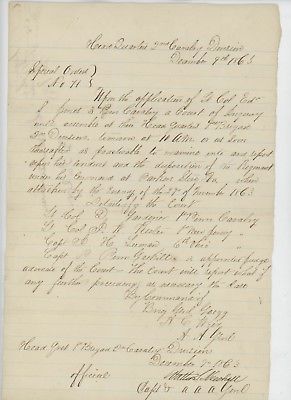 Head Quarters 2nd Cavalry Division
December 7th 1863
Special Orders
No 71
Upon the application of Lt Col Ed
S Jones 3 Penn Cavalry a Court of Inquiry
will assemble at the Head Quarters 1st Brigade
2nd Division, tomorrow at 10 A.M. or as soon
thereafter as practicable to examine into and report
upon his conduct and the disposition of his Regiment
under his Command at Parkers Store Va. when
attacked by the enemy on the 29th of November 1863
Detail for the Court
Lt Col D Gardner 1st Penn Cavalry
Lt Col 1st New Jersey
Capt 6th Ohio
Capt Penn is appointed judge
advocate of the Court. The Court will report what if
any further proceedings as necessary in the case
By Command of
Brig Genl Gregg
H C Weir
A A Genl
Head Qrs 1st Brigade 2nd Cavalry Division
December 7th 1863
official
Capt & A A A Genl